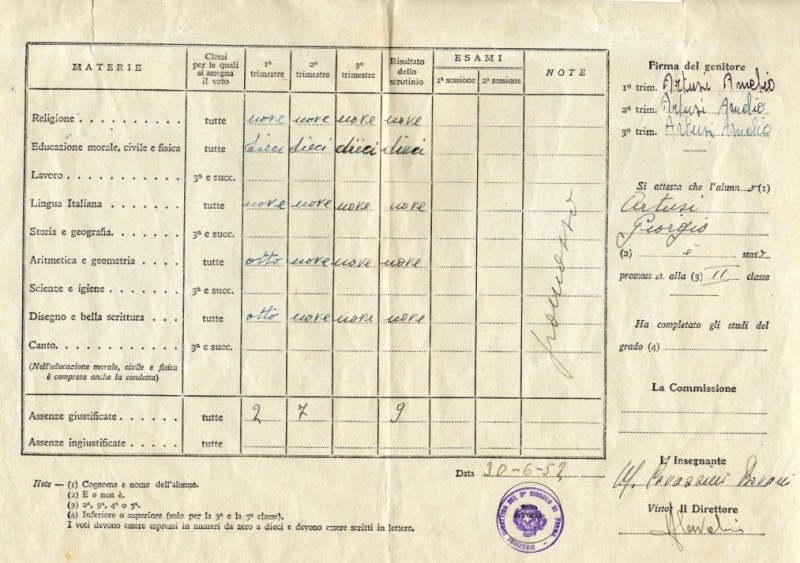 MATERIE
Classi per le quali si assegna il voto
1º trimestre
2º trimestre
3º trimestre
Risultato dello scrutinio
ESAMI
1ª sessione
2ª sessione
NOTE
Religione tutte nove nove nove nove
Educazione morale, civile e fisica tutte dieci dieci dieci dieci
Lavoro 3ª e succ.
Lingua Italiana tutte nove nove nove nove
Storia e geografia. 3ª e succ.
Aritmetica e geometria tutte otto nove nove nove
Scienze e igiene 3ª e succ.
Disegno e bella scrittura tutte otto nove nove nove
Canto. 3ª e succ.
(Nell'educazione morale, civile e fisica
è compresa anche la condotta)
Assenze giustificate tutte 2 7 9
Assenze ingiustificate tutte
promosso
Note — (1) Cognome e nome dell'alunno.
(2) È o non è.
(3) 2ª, 3ª, 4ª o 5ª.
(4) Inferiore o superiore (solo per la 3ª e la 7ª classe).
I voti devono essere espressi in numeri da zero a dieci e devono essere scritti in lettere.
Data 30-6-52
Firma del genitore
1º trim. Artusi Amelio
2º trim. Artusi Amelio
3º trim. Artusi Amelio
Si attesta che l'alunno (1)
Artusi
Giorgio
(2) è stato
promosso alla (3) II classe
Ha completato gli studi del
grado (4)
La Commissione
L'Insegnante
Visto: Il Direttore